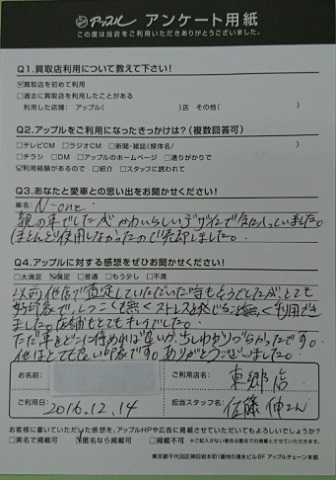 アップル アンケート用紙
この度は当店をご利用いただきありがとうございました。
Q1.買取店利用について教えて下さい!
☑買取店を初めて利用
□過去に買取店を利用したことがある
利用した店舗: アップル( )店 その他( )
Q2.アップルをご利用になったきっかけは?(複数回答可)
□テレビCM □ラジオCM □新聞・雑誌(媒体名/ )
□チラシ □DM □アップルのホームページ □通りがかりで
☑利用経験があるので □紹介 □スタッフに誘われて
Q3.あなたと愛車との思い出をお聞かせください!
車名: N-one
親の車でしたが、かわいらしいデザインで気に入っていました。
ほとんど使用しなかったので売却しました。
Q4.アップルに対する感想をぜひお聞かせください!
□大満足 ☑満足 □普通 □もう少し □不満
以前他店で査定していただいた時もそうでしたが、とても
好印象で、しつこくも無くストレスを感じる事無く利用でき
ました。店舗もとてもキレイでした。
ただ車をどこに停めれば良いか、少しわかりづらかったです。
他はとても良い印象です。ありがとうございました。
お名前:
ご利用店名:
東郷店
ご利用日:
2016.12.14
担当スタッフ名:
佐藤 伸さん
お客様に書いていただいた感想を、アップルHPや広告に掲載させていただいてもよろしいでしょうか?
□実名で掲載可 ☑匿名なら掲載可 □掲載不可 ※ご記入がない場合は匿名での掲載とさせていただきます。
東京都千代田区神田岩本町1番地5清水ビル8F アップルチェーン本部